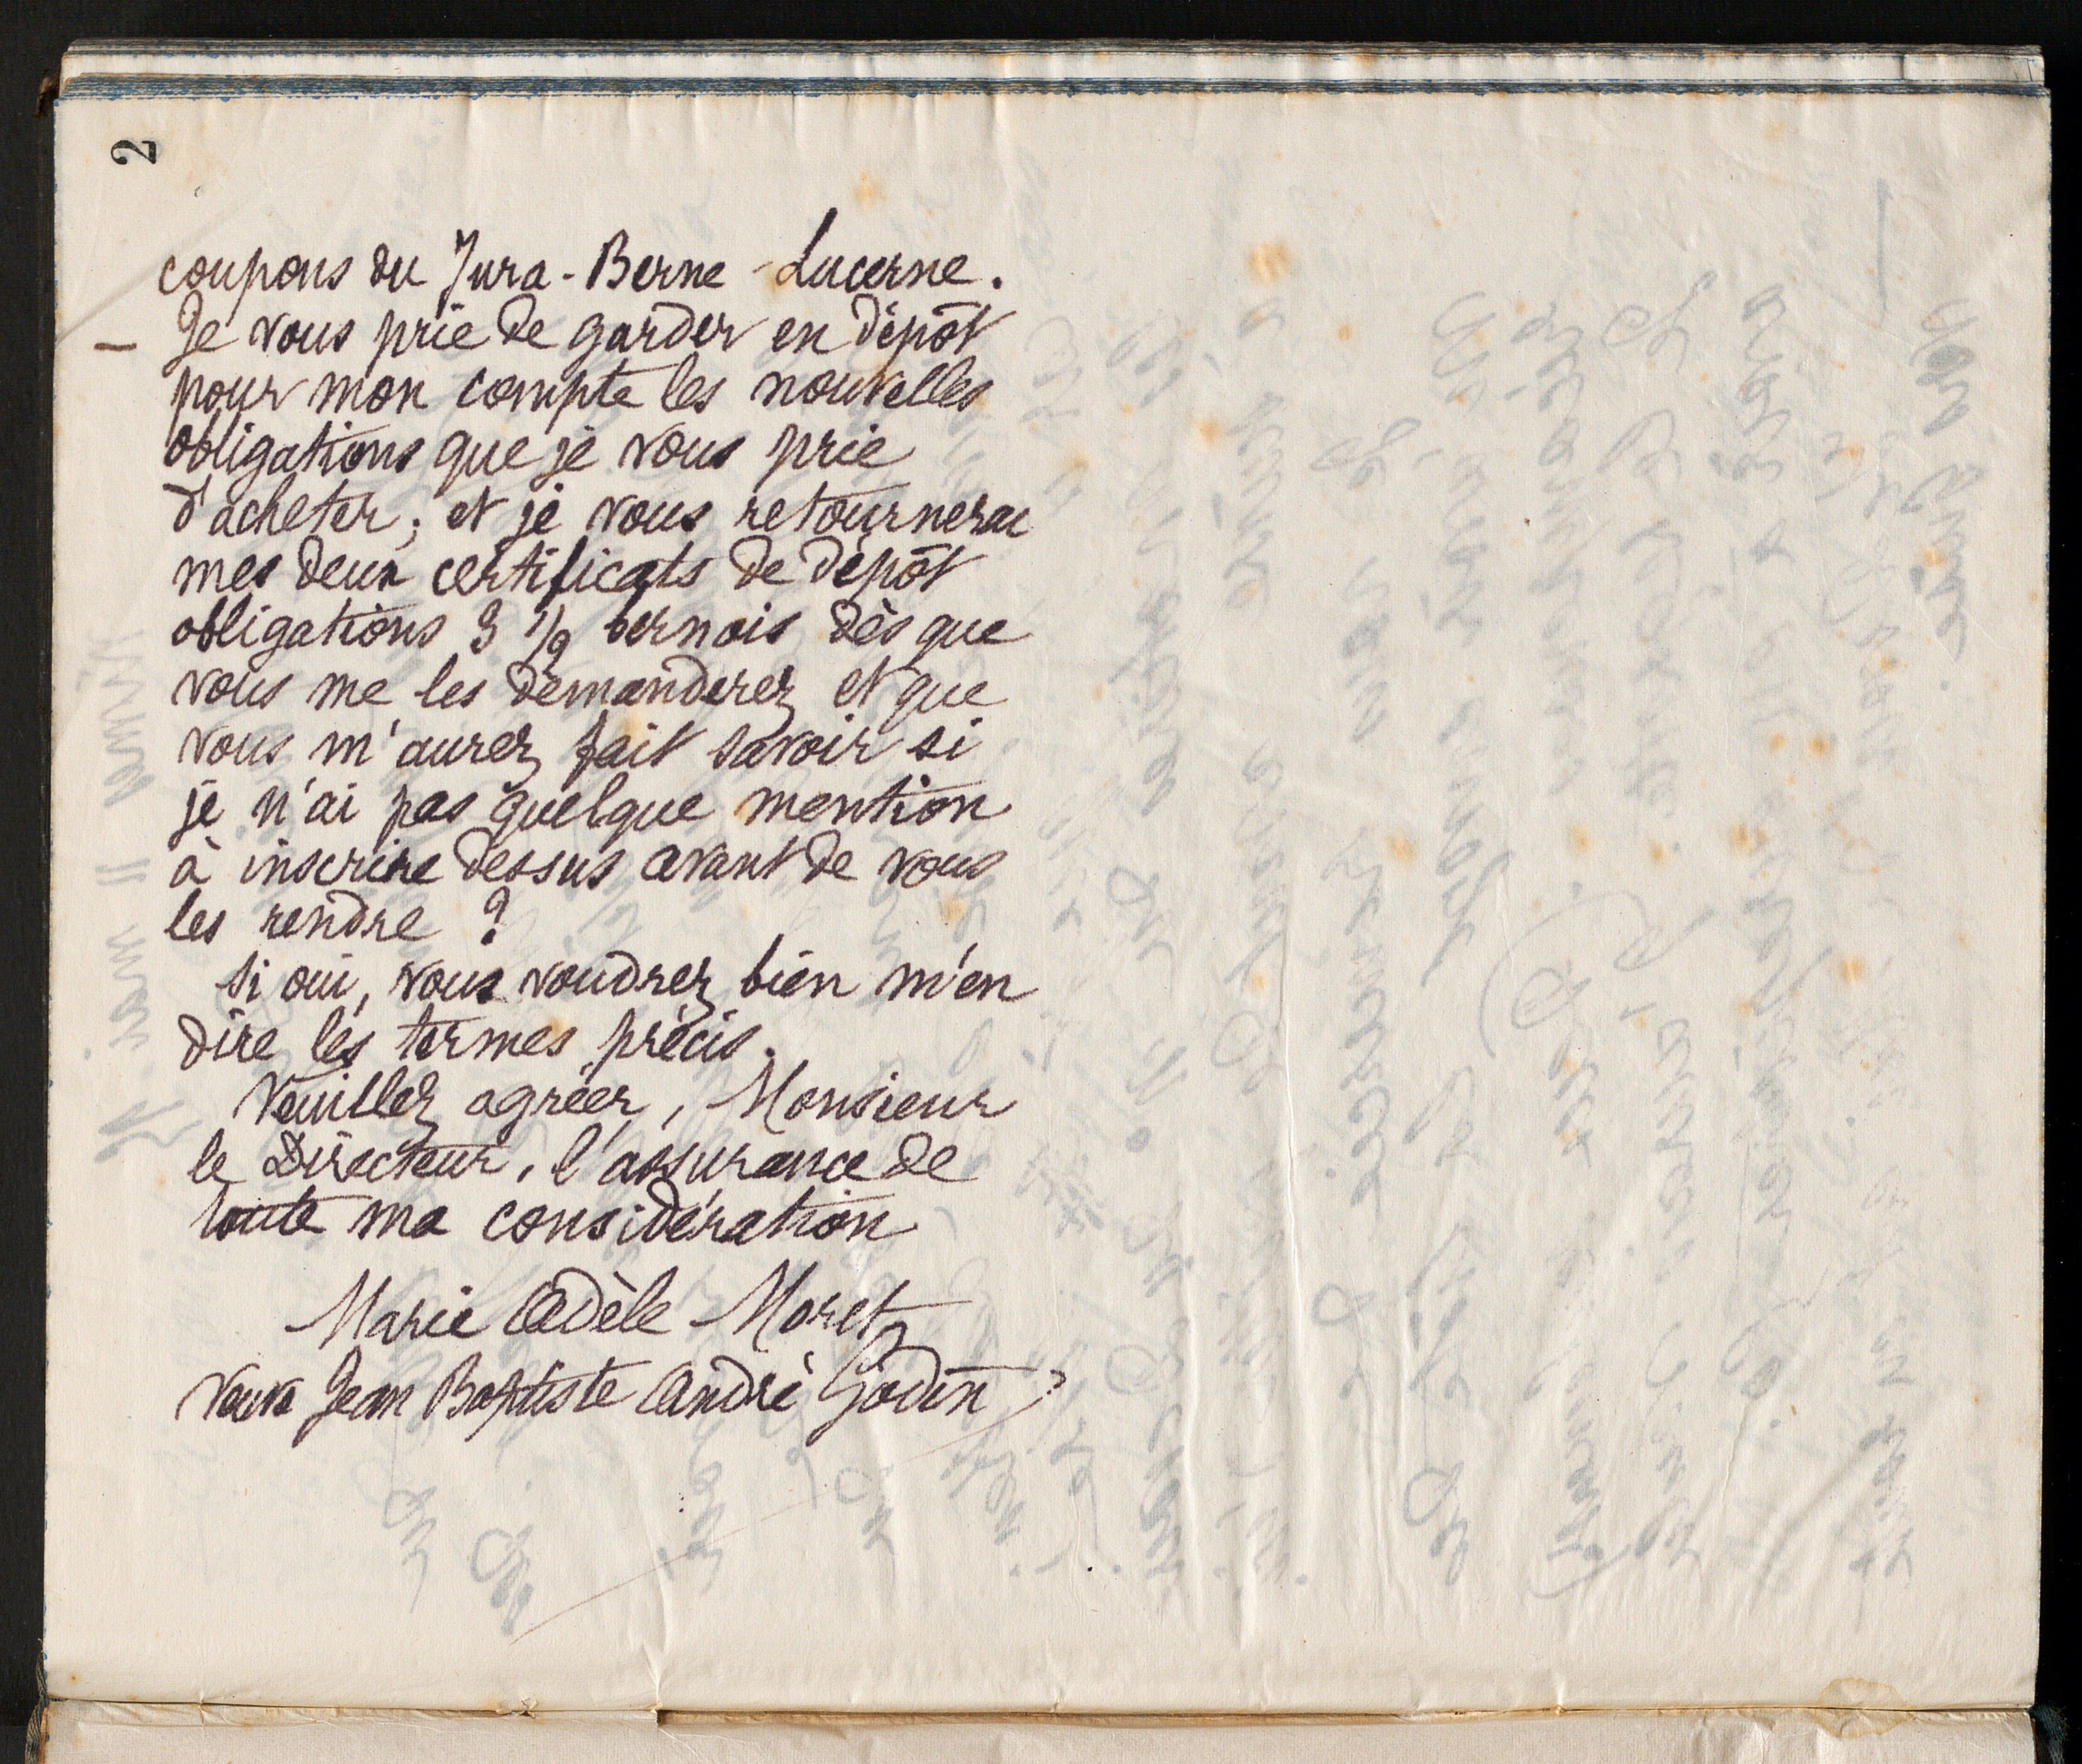 2
coupons du Jura-Berne-Lucerne.
— Je vous prie de garder en dépôt
pour mon compte les nouvelles
obligations que je vous prie
d'acheter; et je vous retournerai
mes deux certificats de dépôt
obligations 3 1/2 bernois dès que
vous me les demanderez et que
vous m'aurez fait savoir si
je n'ai pas quelque mention
à inscrire dessus avant de vous
les rendre ?
Si oui, vous voudrez bien m'en
dire les termes précis.
Veuillez agréer, Monsieur
le Directeur, l'assurance de
toute ma considération
Marie Adèle Moret
Veuve Jean Baptiste André Godin